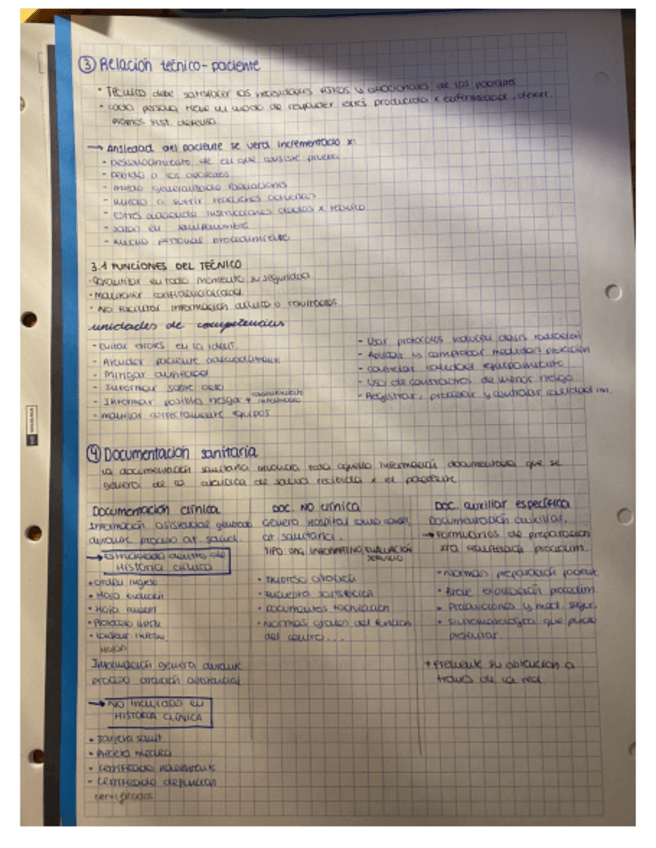 ③ Relación técnico-paciente
• Técnico debe satisfacer las necesidades físicas y emocionales de los pacientes
• cada persona tiene un modo de responder estrés producido x enfermedad,
→ Ansiedad del paciente se verá incrementado x:
- Desconocimiento de en qué consiste prueba
- miedo generalizado radiaciones
- miedo a sufrir reacciones adversas
- Estrés instrucciones dadas x técnico
3.1 FUNCIONES DEL TÉCNICO
- Garantizar en todo momento su seguridad
- Mantener confidencialidad
- No facilitar información o resultados
unidades de competencias
- Evitar errores en la ident.
- Atender paciente adecuadamente
- Mitigar ansiedad
- Informar sobre
- Informar posibles riesgos +
- manejar correctamente equipos
- Usar protocolos reducen dosis radiación
- Aplicar y comprobar medidas protección
- controlar calidad equipamiento
- Uso de contrastes de menos riesgo
- Registrar, procesar y controlar calidad im.
④ Documentación sanitaria
La documentación sanitaria incluye toda aquella información documental que se
genera de la atención de salud recibida x el paciente
Documentación clínica
Información asistencial generada
durante proceso at. salud.
→ Historia clínica
• Hoja evolución
Información genera durante
proceso atención asistencial
→ No incluido en
HISTORIA CLÍNICA
• Tarjeta sanit.
• Receta médica
• Certificado nacimiento
• Certificado defunción
certificados
DOC. NO clínica
Genera hospital como
at sanitaria.
TIPO ORG. INFORMATIVO, EVALUACIÓN
SERVICIO
• Encuesta satisfacción
• Documentos facturación
• Normas del funcion
del centro...
DOC. auxiliar específica
Documentación auxiliar.
→ Formularios de preparación
xra realización procedim.
• Normas preparación paciente
• Breve explicación procedim
• Precauciones y med. segur.
• Sintomatología que puede
presentar.
+ Frecuente su obtención a
través de la red.